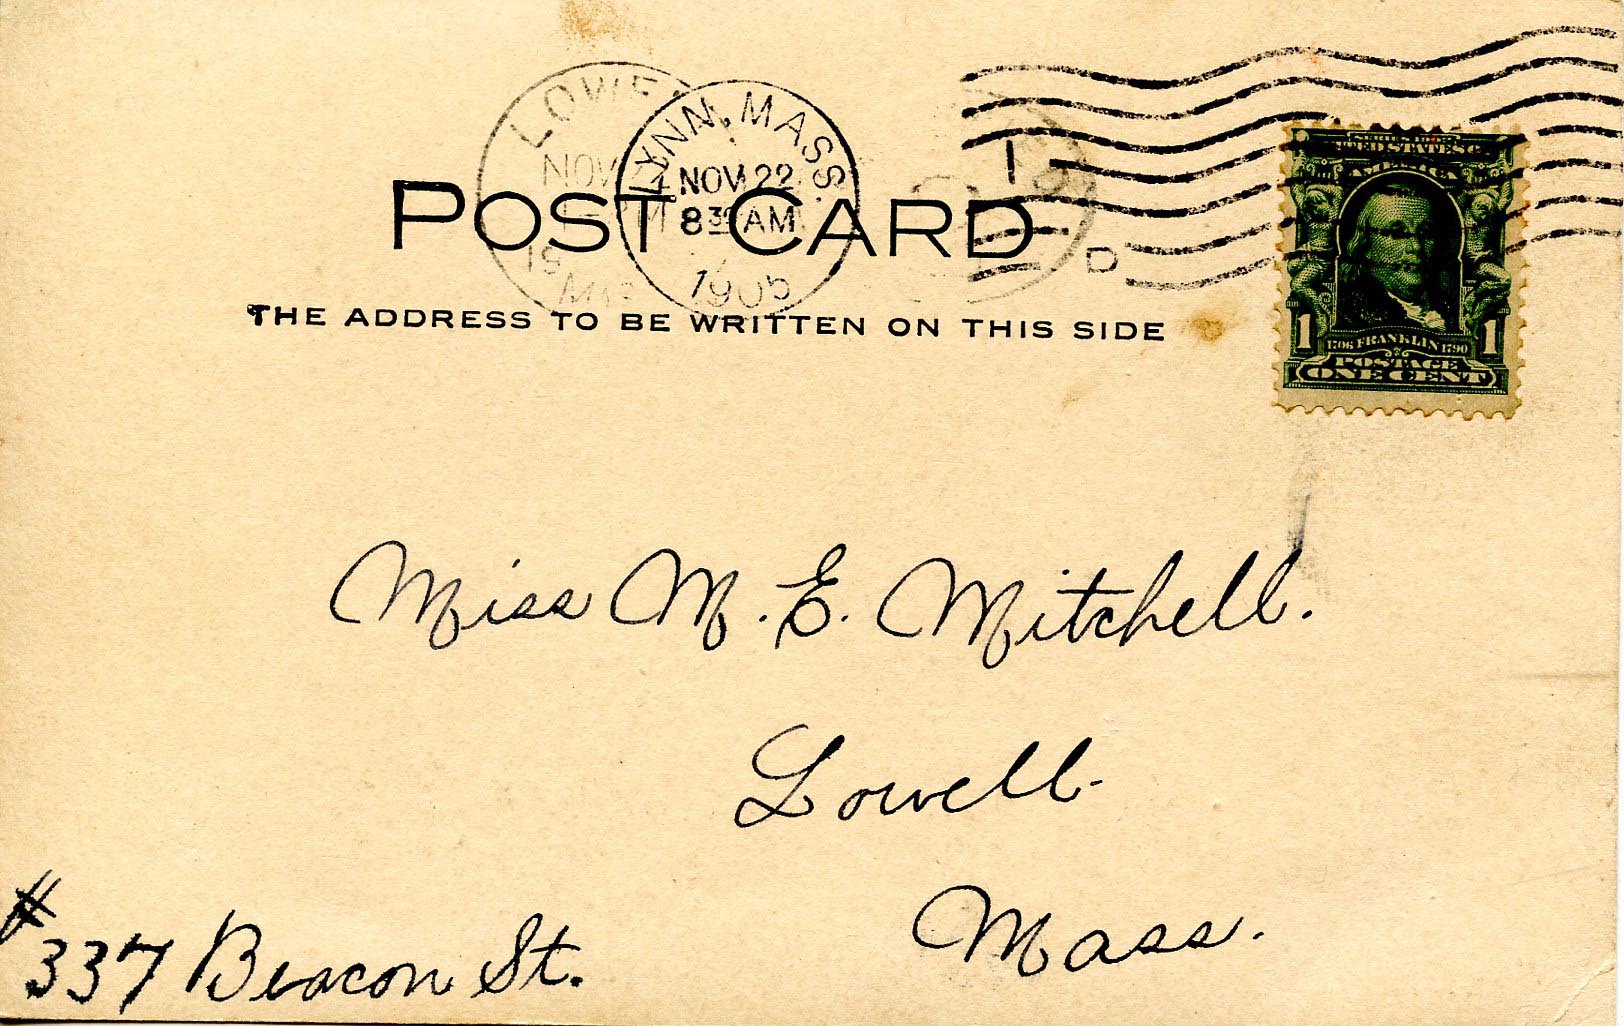 LOWE
LYNN, MASS.
NOV
NOV 22
8 30 AM
1905
POST CARD
THE ADDRESS TO BE WRITTEN ON THIS SIDE
1
D
UNITED STATES OF
AMERICA
1 1706 FRANKLIN 1790 1
POSTAGE
ONE CENT
Miss M. E. Mitchell.
Lowell.
Mass.
# 337 Beacon St.